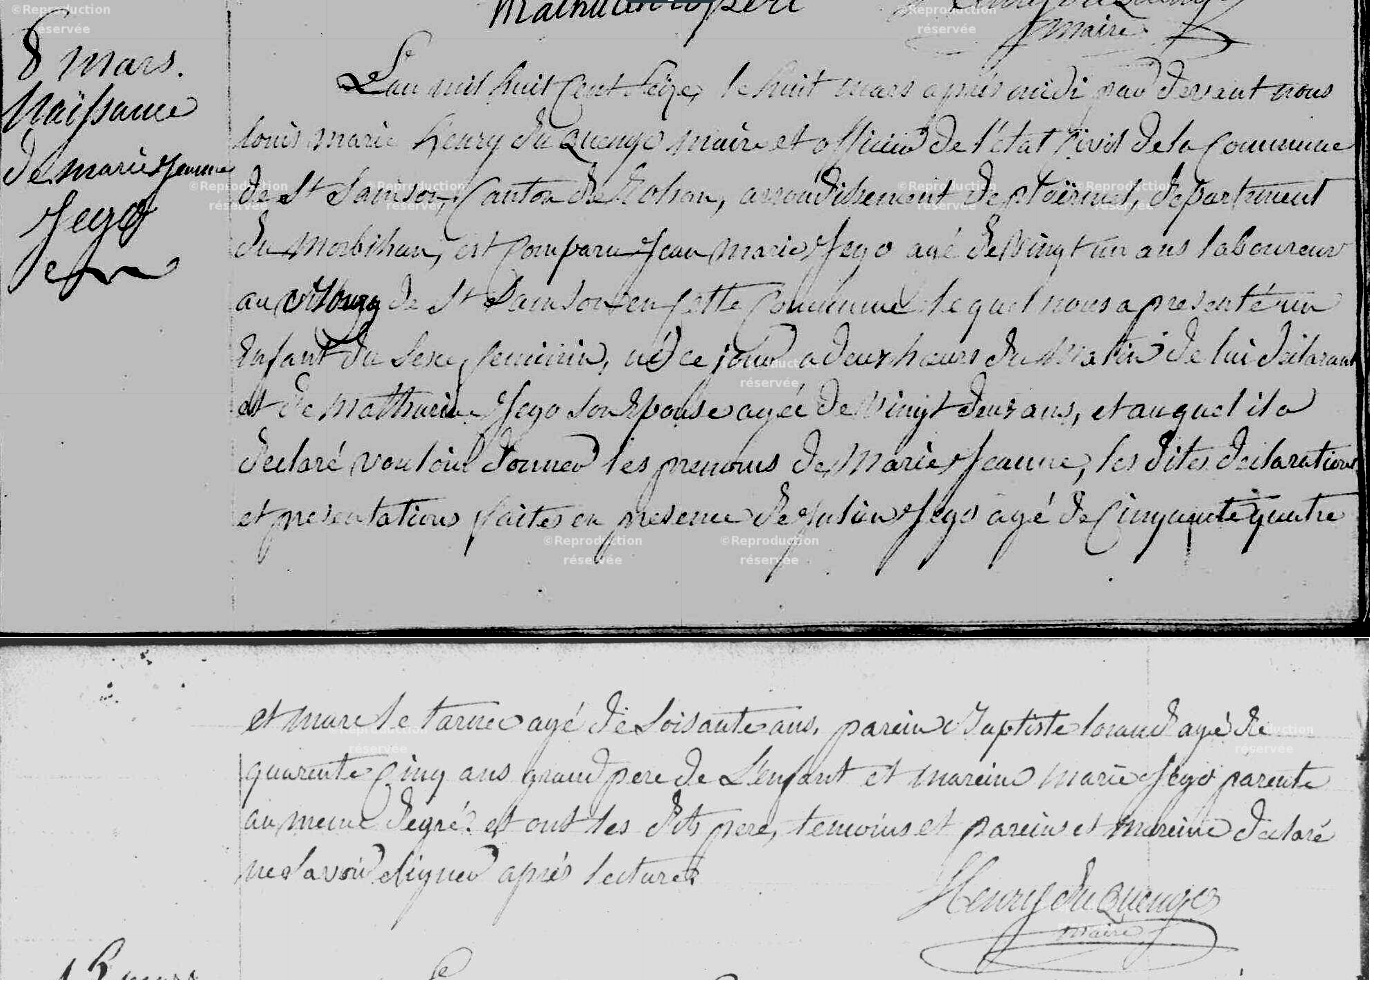 maire
8 mars.
Naissance
de marie Jeanne
Jego
L'an mil huit Cent Seize, le huit mars après midi par devant nous
louis marie henry du Quengo maire et officier de l'état Civil de la Commune
de St Samson, Canton de Rohan, arrondissement de ploërmel, département
du Morbihan, est Comparu Jean marie Jego agé de Vingt un ans laboureur
au Bourg de St Samson en cette Commune le quel nous a presenté un
Enfant du Sexe feminin, né ce jour a deux heures du Matin de lui déclarant
et de Mathurine Jego Son Epouse agée de Vingt deux ans, et auquel il a
declaré vouloir donner les prenoms de Marie Jeanne, les dites declarations
et presentations faites en presence de Julien Jego agé de Cinquante quatre
et marc le agé de Soisante ans, parein Baptiste agé de
quarente Cinq ans grand pere de L'enfant et mareine marie Jego parente
au meme degré. et ont les dits pere, temoins et parein et mareine declaré
ne Savoir Signer après lecture
Henry du Quengo
maire
mars